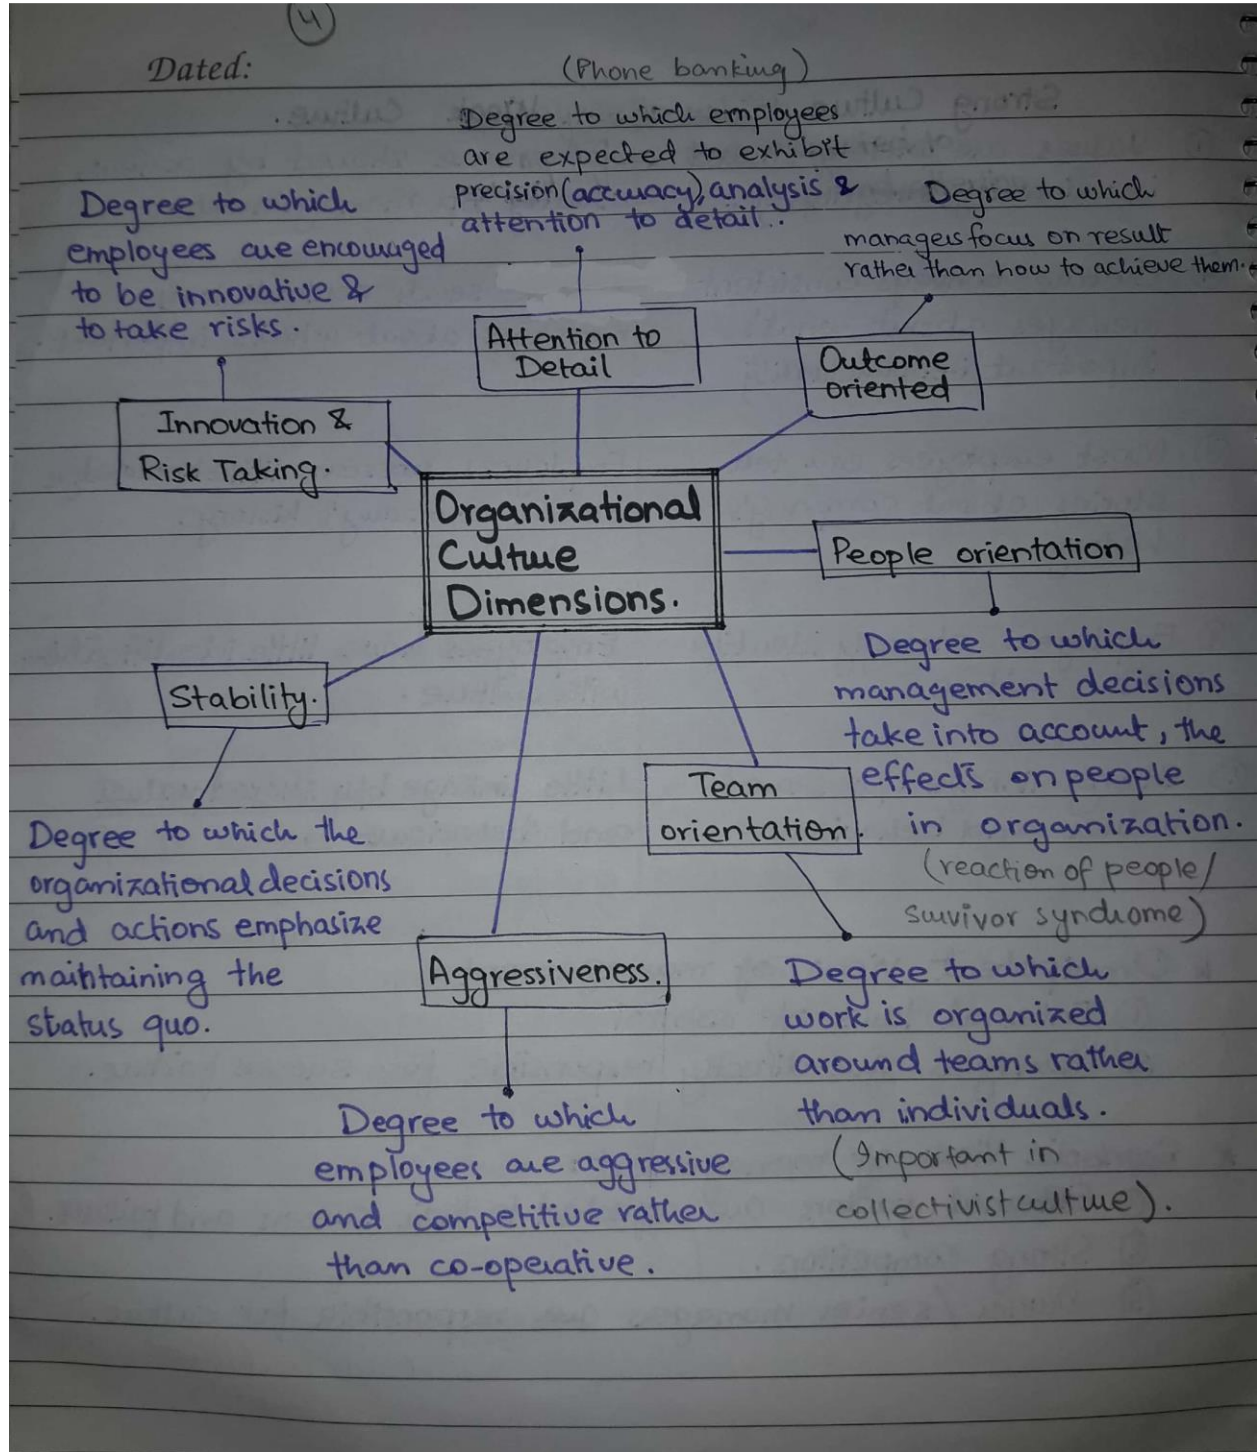 4
Dated:
(Phone banking)
Degree to which employees
are expected to exhibit
precision(accuracy), analysis &
attention to detail.
Degree to which
employees are encouraged
to be innovative &
to take risks.
Degree to which
managers focus on result
rather than how to achieve them.
Attention to
Detail
Outcome
oriented
Innovation &
Risk Taking.
Organizational
Culture
Dimensions.
People orientation
Degree to which
management decisions
take into account, the
effects on people
in organization.
(reaction of people/
survivor syndrome)
Stability.
Degree to which the
organizational decisions
and actions emphasize
maintaining the
status quo.
Team
orientation.
Degree to which
work is organized
around teams rather
than individuals.
(Important in
collectivist culture).
Aggressiveness.
Degree to which
employees are aggressive
and competitive rather
than co-operative.